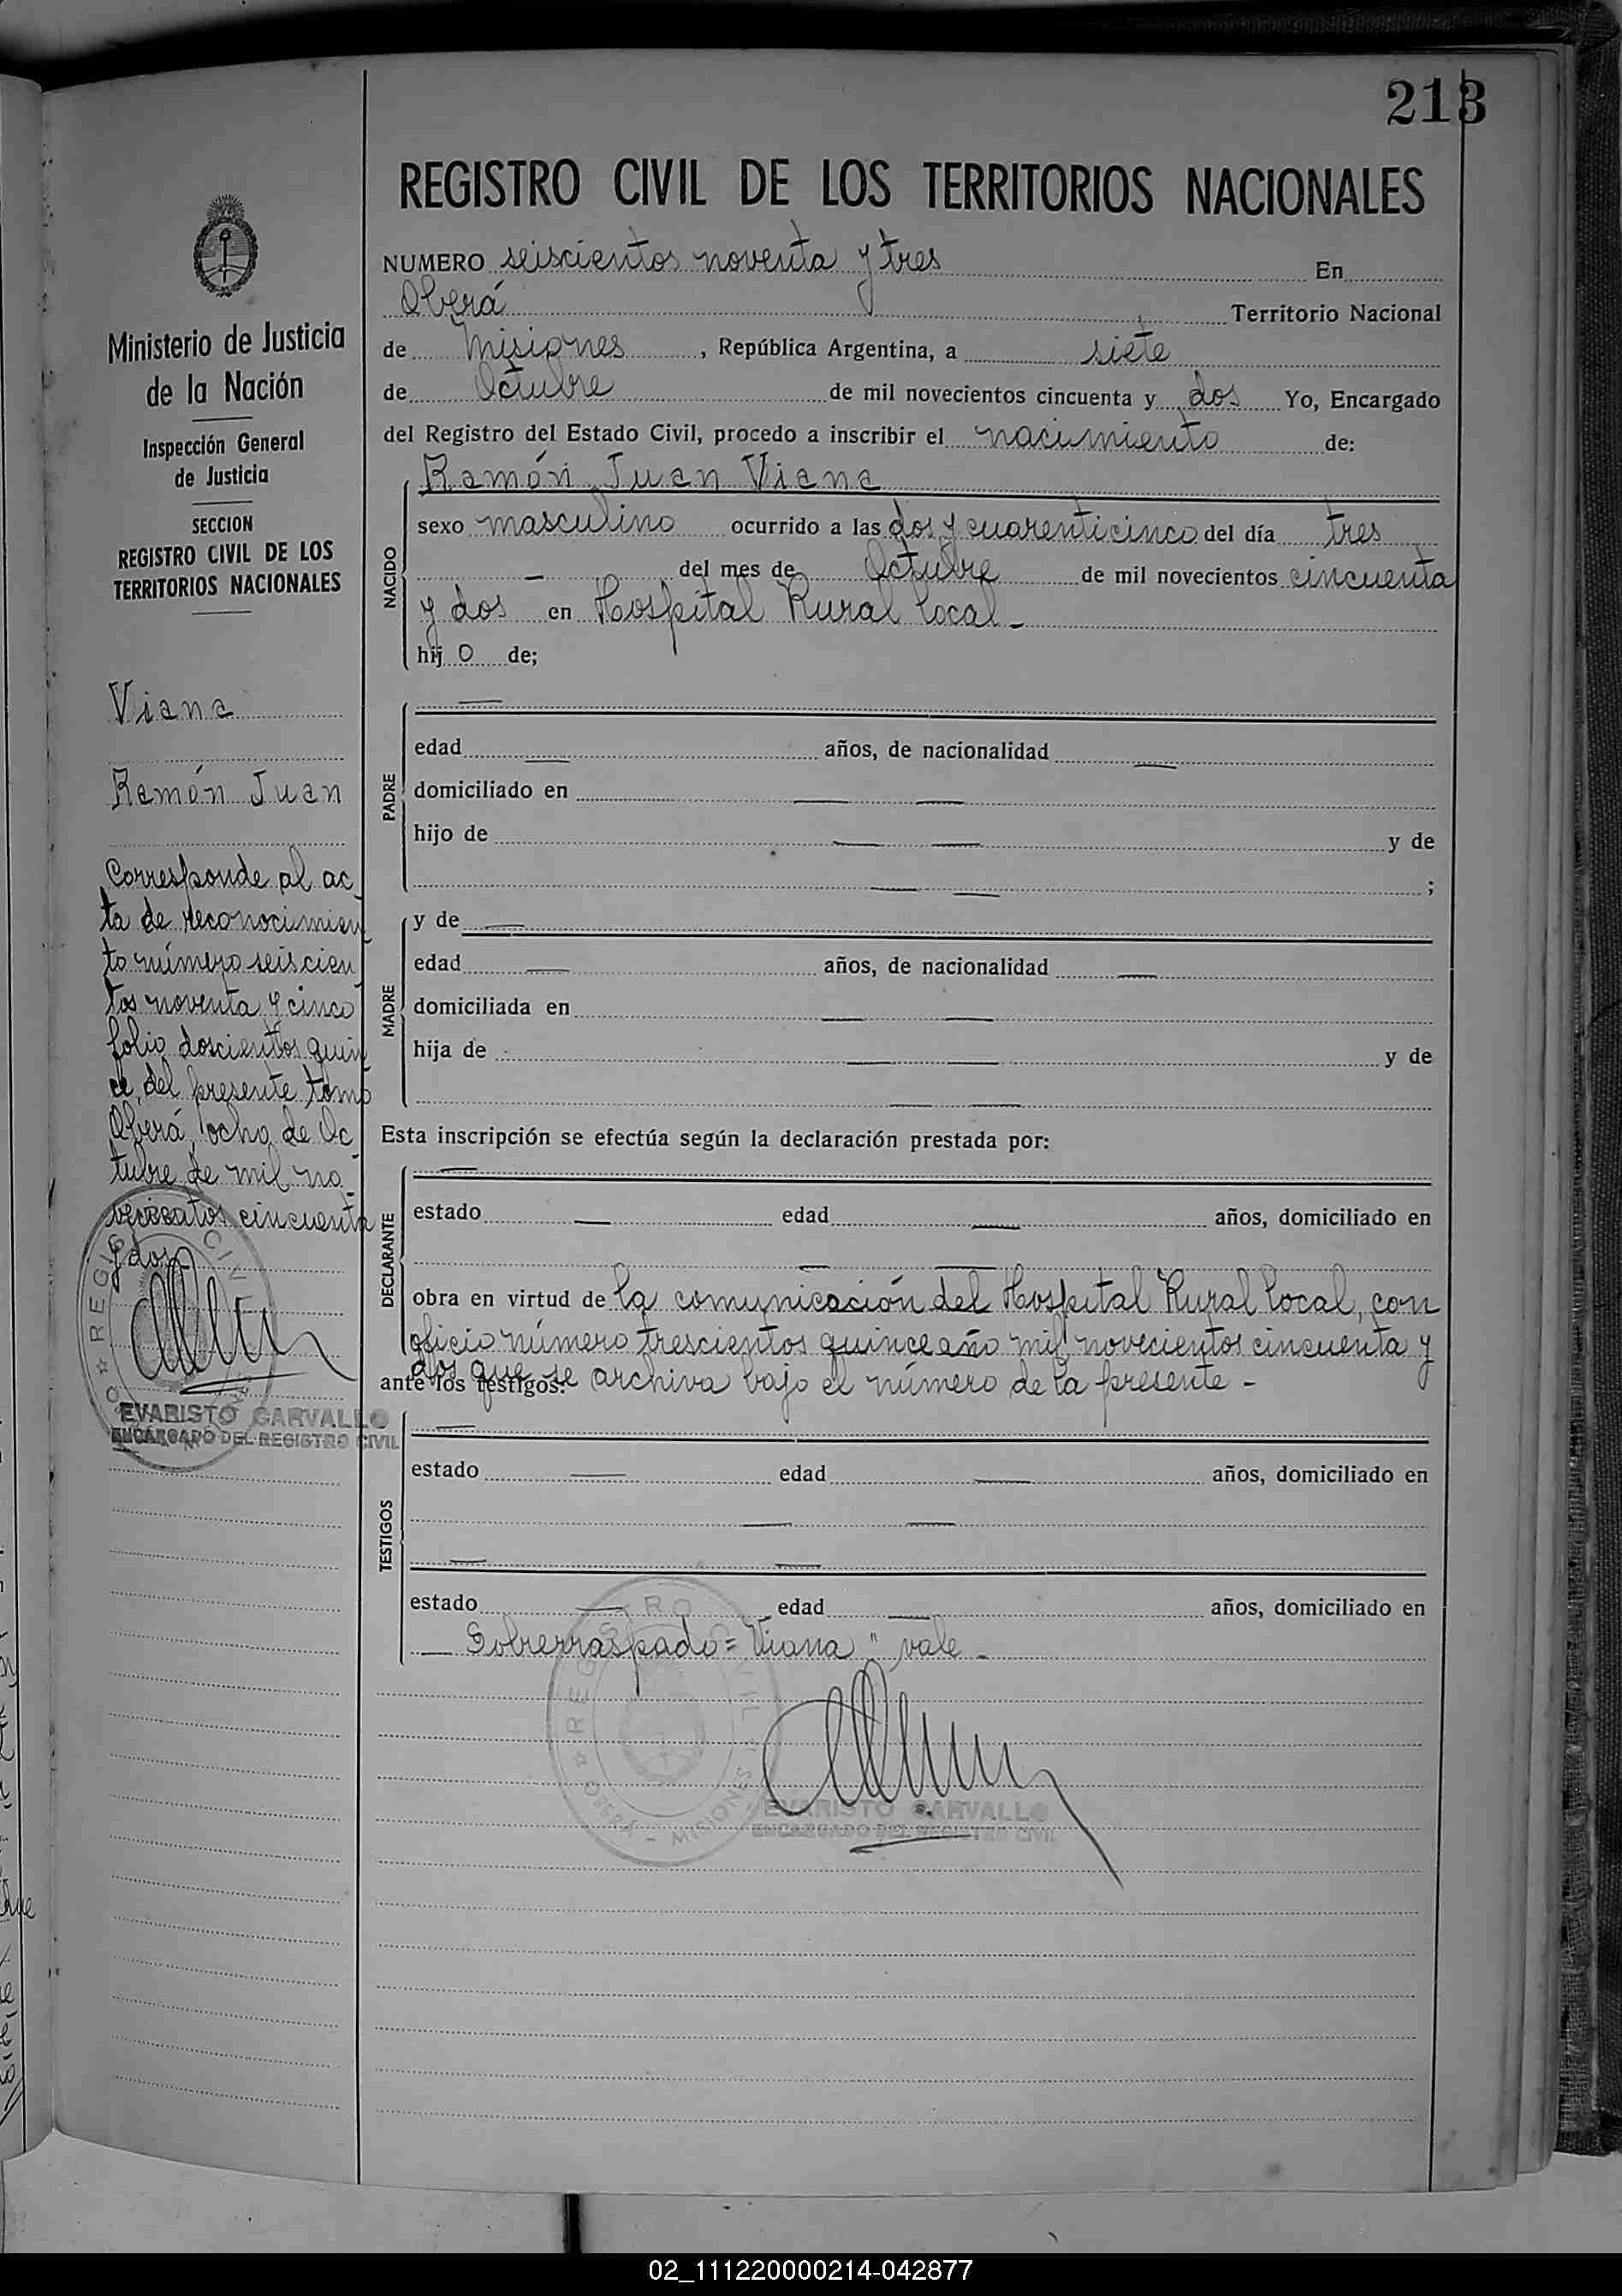 213
REGISTRO CIVIL DE LOS TERRITORIOS NACIONALES
NUMERO seiscientos noventa y tres En
Oberá Territorio Nacional
de Misiones, República Argentina, a siete
de Octubre de mil novecientos cincuenta y dos Yo, Encargado
del Registro del Estado Civil, procedo a inscribir el nacimiento de:
Ramón Juan Viana
NACIDO
sexo masculino ocurrido a las dos y cuarenticinco del día tres
— del mes de Octubre de mil novecientos cincuenta
y dos en Hospital Rural local -
hij o de;
PADRE
—
edad — años, de nacionalidad —
domiciliado en — —
hijo de — — y de
— — ;
MADRE
y de —
edad — años, de nacionalidad —
domiciliada en — —
hija de — — y de
— —
Esta inscripción se efectúa según la declaración prestada por:
DECLARANTE
—
estado — edad — años, domiciliado en
— —
obra en virtud de la comunicación del Hospital Rural local, con
oficio número trescientos quince año mil novecientos cincuenta y
dos que se archiva bajo el número de la presente -
ante los testigos:
TESTIGOS
—
estado — edad — años, domiciliado en
— —
— —
estado — edad — años, domiciliado en
— Sobrerraspado = "Viana" vale -
REGISTRO CIVIL
OBERA - MISIONES
EVARISTO CARVALLO
ENCARGADO DEL REGISTRO CIVIL
Ministerio de Justicia
de la Nación
Inspección General
de Justicia
SECCION
REGISTRO CIVIL DE LOS
TERRITORIOS NACIONALES
Viana
Ramón Juan
Corresponde al ac
ta de reconocimien
to número seiscien
tos noventa y cinco
folio doscientos quin
ce, del presente tomo
Oberá, ocho de Oc
tubre de mil no
vecientos cincuenta
y dos -
REGISTRO CIVIL
EVARISTO CARVALLO
ENCARGADO DEL REGISTRO CIVIL
02_111220000214-042877